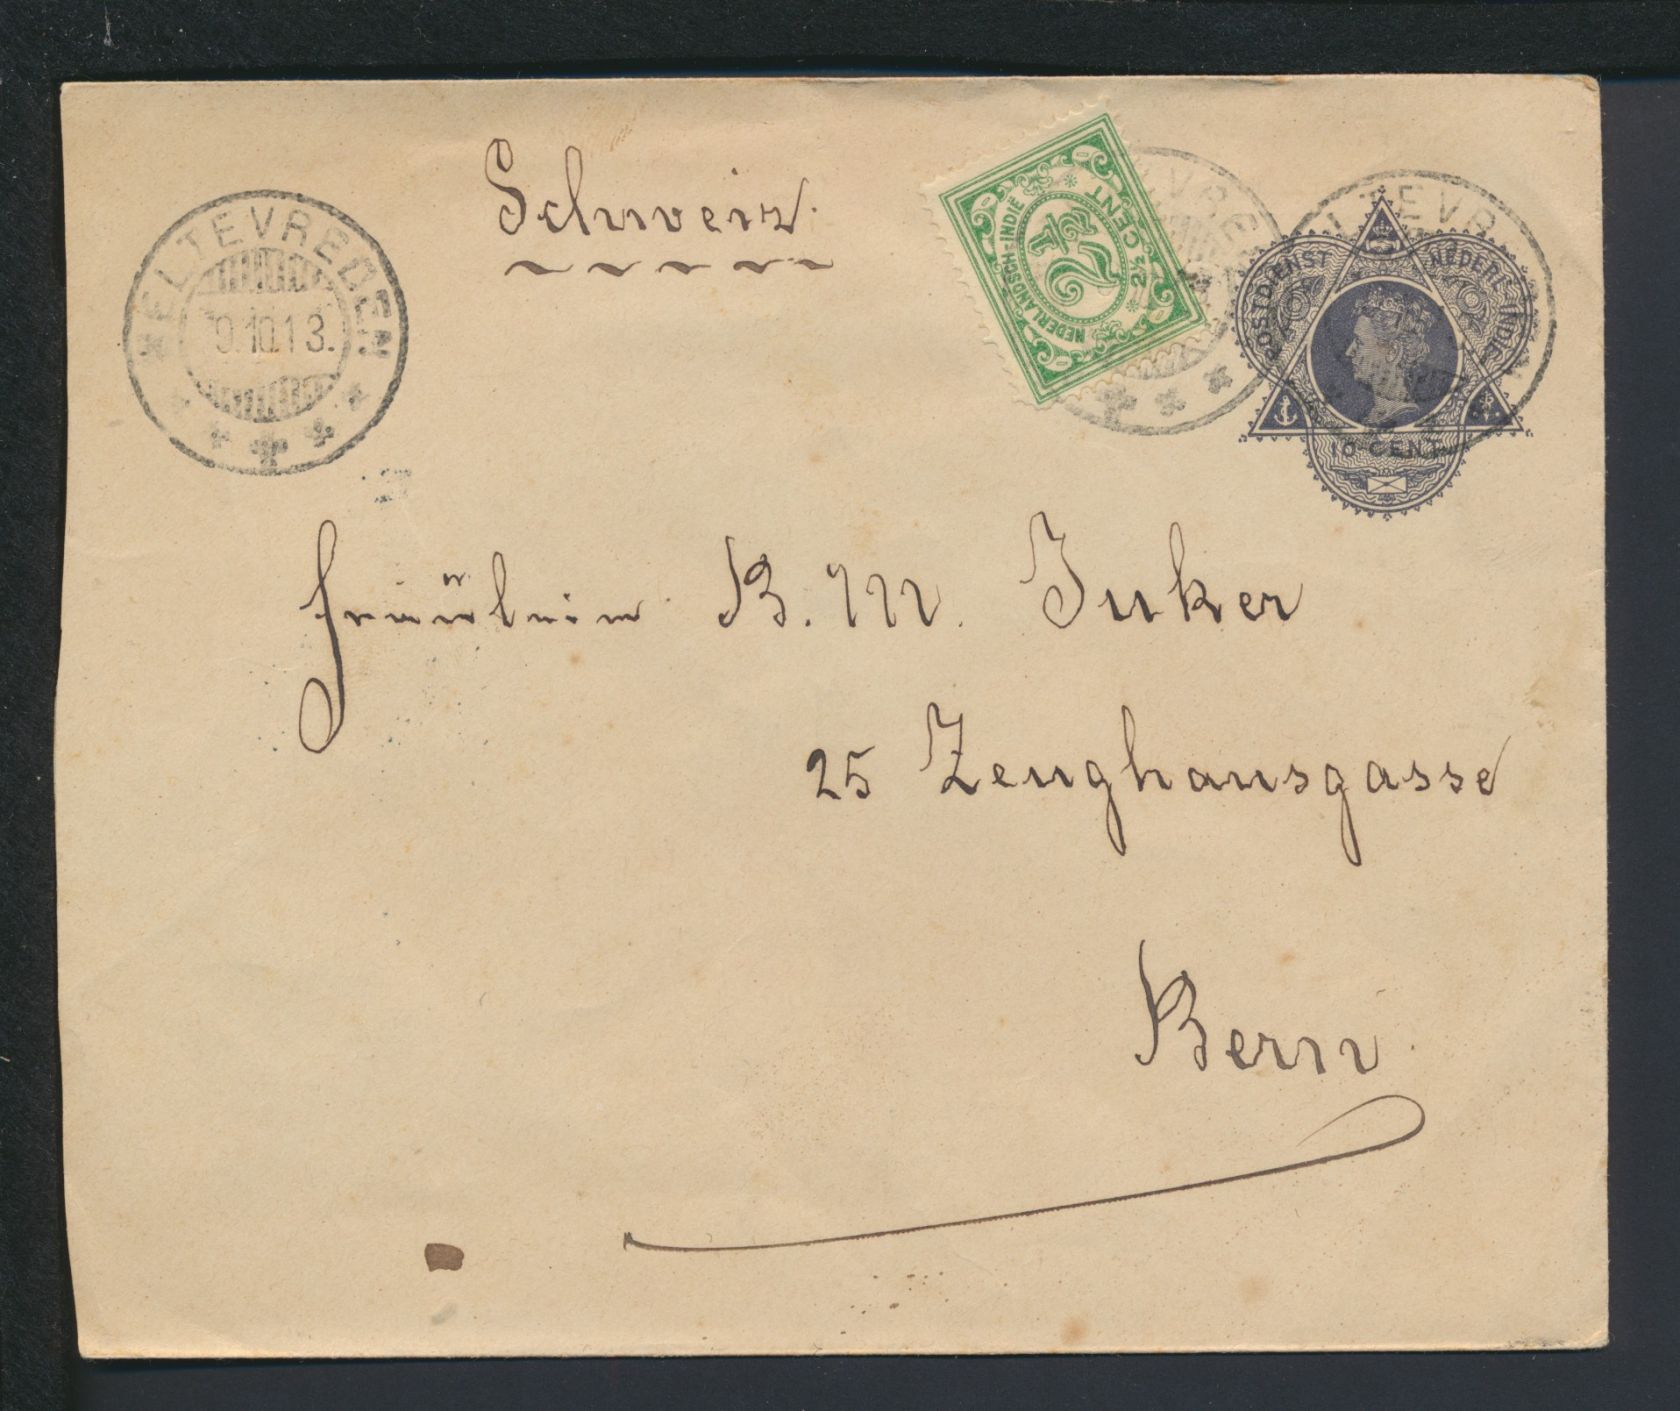 Schweiz.
WELTEVREDEN
9.10.13.
NEDERLANDSCH-INDIË
2½
2½ CENT
POSTDIENST
NEDERL. INDIE
10 CENT
LTEVR
Fräulein B. M. Juker
25 Zeughausgasse
Bern.